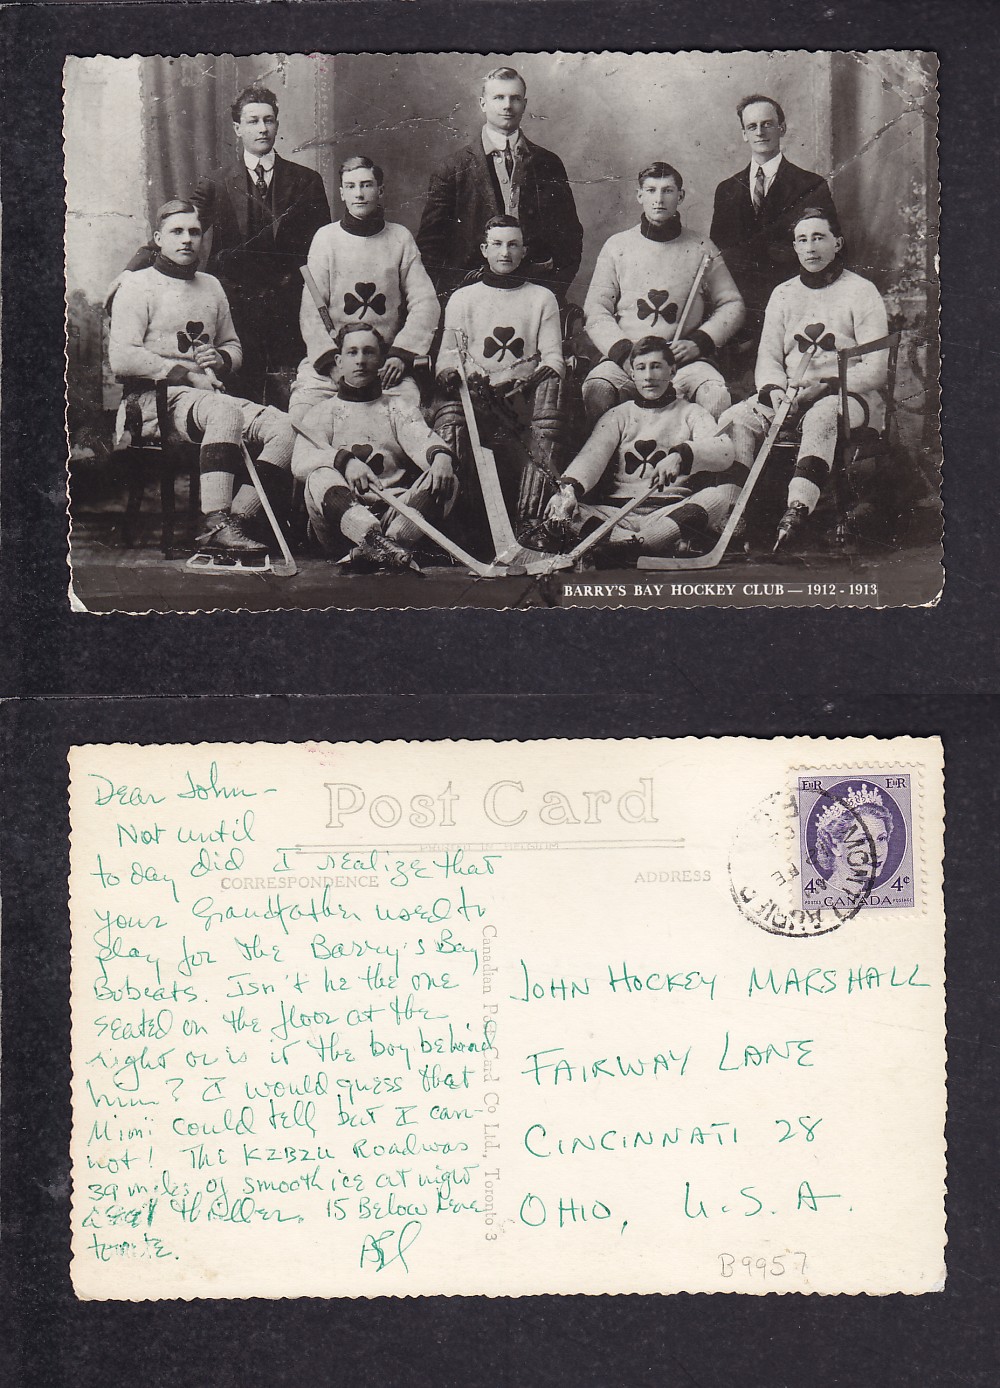 BARRY'S BAY HOCKEY CLUB — 1912 - 1913
Post Card
CORRESPONDENCE
ADDRESS
Dear John -
Not until
to day did I realize that
your Grandfather used to
play for the Barry's Bay
Bobcats. Isn't he the one
seated on the floor at the
right or is it the boy behind
him? I would guess that
Mimi could tell but I can-
not! The KZBZU Road was
39 miles of smooth ice at night
thriller. 15 Below here
tonite.
Canadian Post Card Co. Ltd., Toronto 3
EIIR
EIIR
4¢
4¢
POSTES CANADA POSTAGE
JOHN HOCKEY MARSHALL
FAIRWAY LANE
CINCINNATI 28
OHIO, U.S.A.
B9957